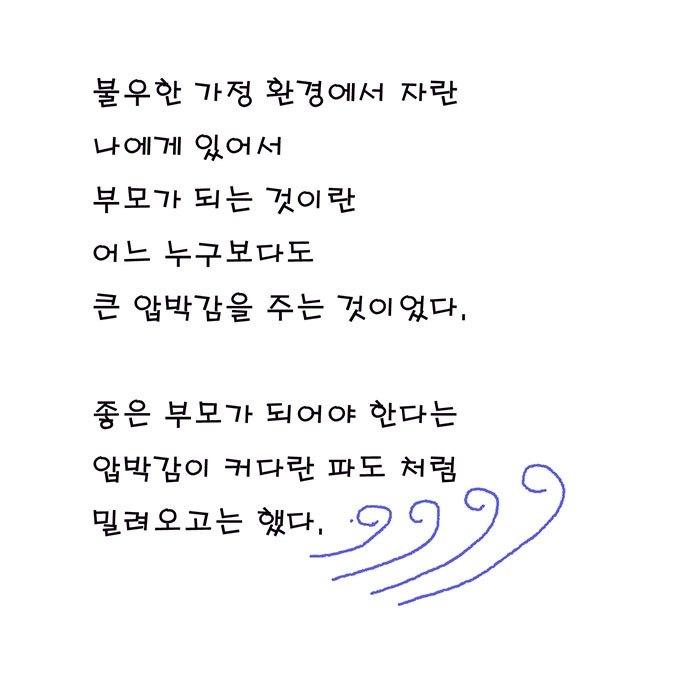 불우한 가정 환경에서 자란
나에게 있어서
부모가 되는 것이란
어느 누구보다도
큰 압박감을 주는 것이었다.
좋은 부모가 되어야 한다는
압박감이 커다란 파도 처럼
밀려오고는 했다.